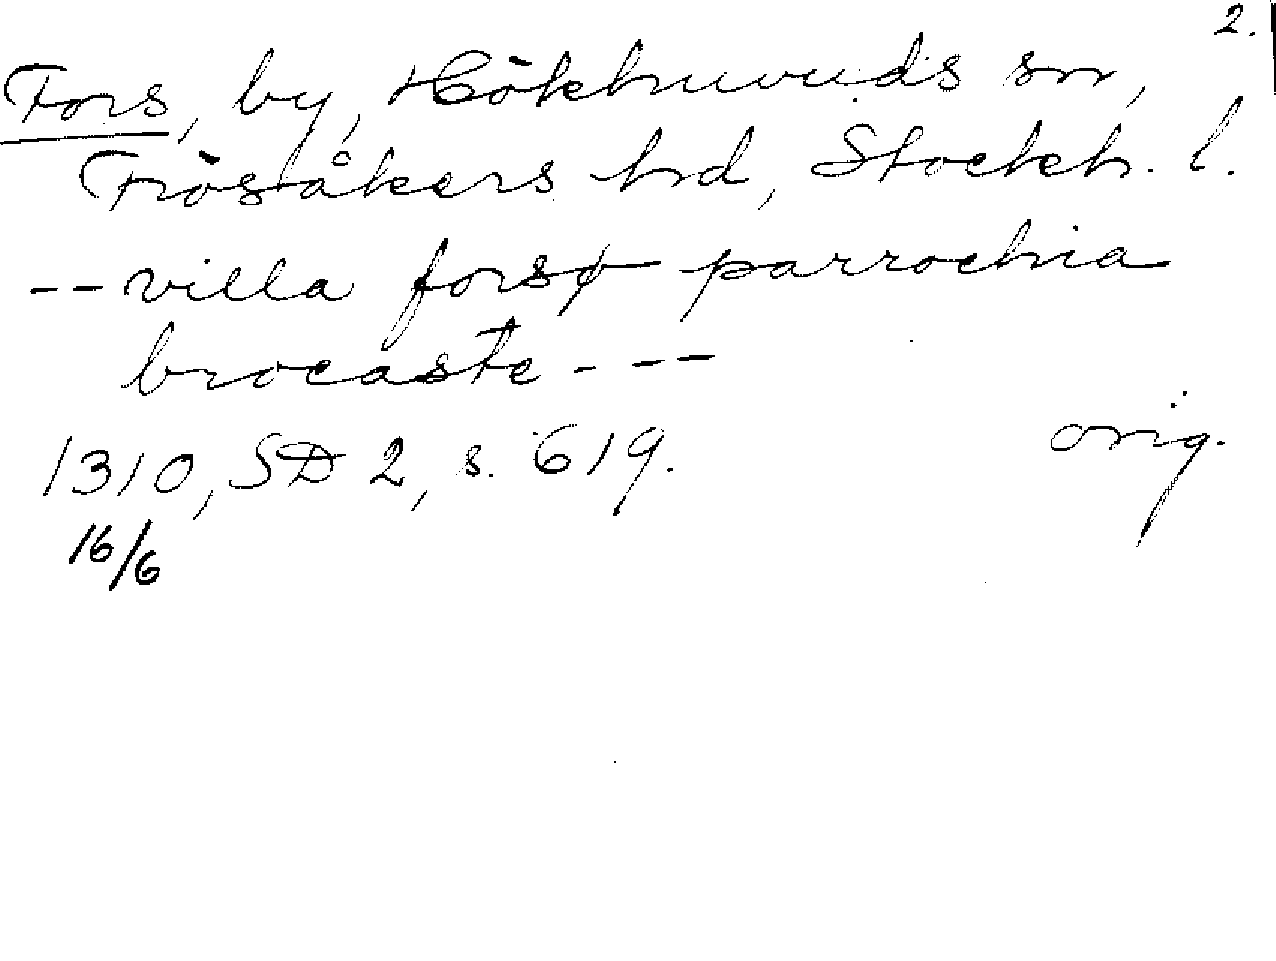 2.
Fors, by, Hökhuvuds sn,
Frösåkers hd, Stockh. l.
-- villa forsø parrochia
brocaste ---
1310, SD 2, s. 619. orig.
16/6